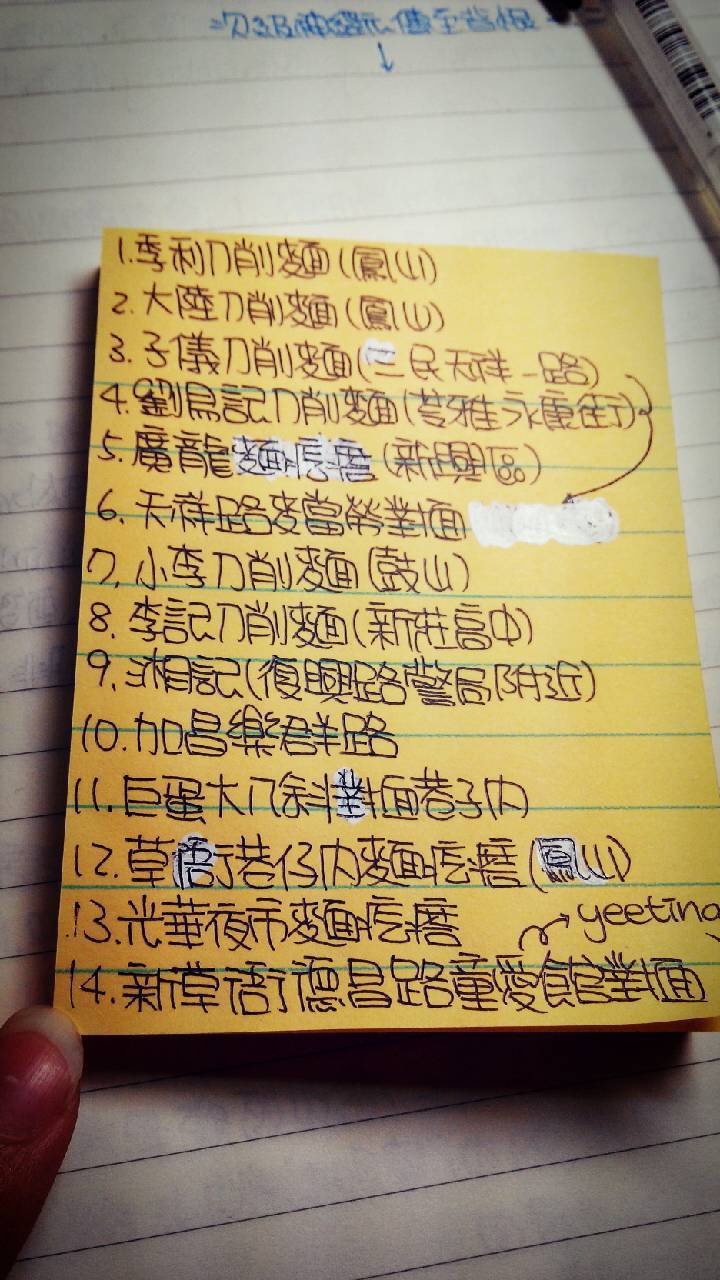 次級神經元傳至背根
↓
1.季利刀削麵(鳳山)
2.大陸刀削麵(鳳山)
3.子儀刀削麵(三民天祥一路)
4.劉烏記刀削麵(苓雅永康街)
5.廣龍麵疙瘩(新興區)
6.天祥路麥當勞對面
7.小李刀削麵(鼓山)
8.李記刀削麵(新莊高中)
9.湘記(復興路警局附近)
10.加昌樂群路
11.巨蛋大八斜對面巷子內
12.草衙巷仔內麵疙瘩(鳳山)
13.光華夜市麵疙瘩
yeeting
14.新草衙德昌路童愛館對面